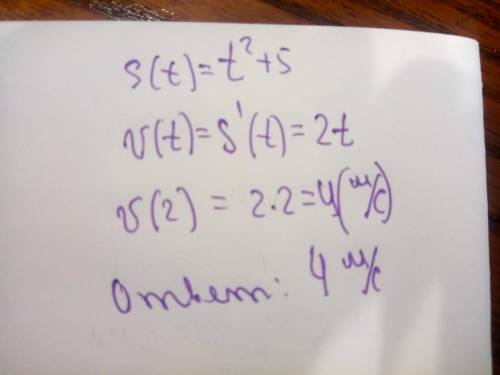 s(t)=t²+5
v(t)=s'(t)=2t
v(2) = 2·2=4(м/с)
Ответ: 4 м/с